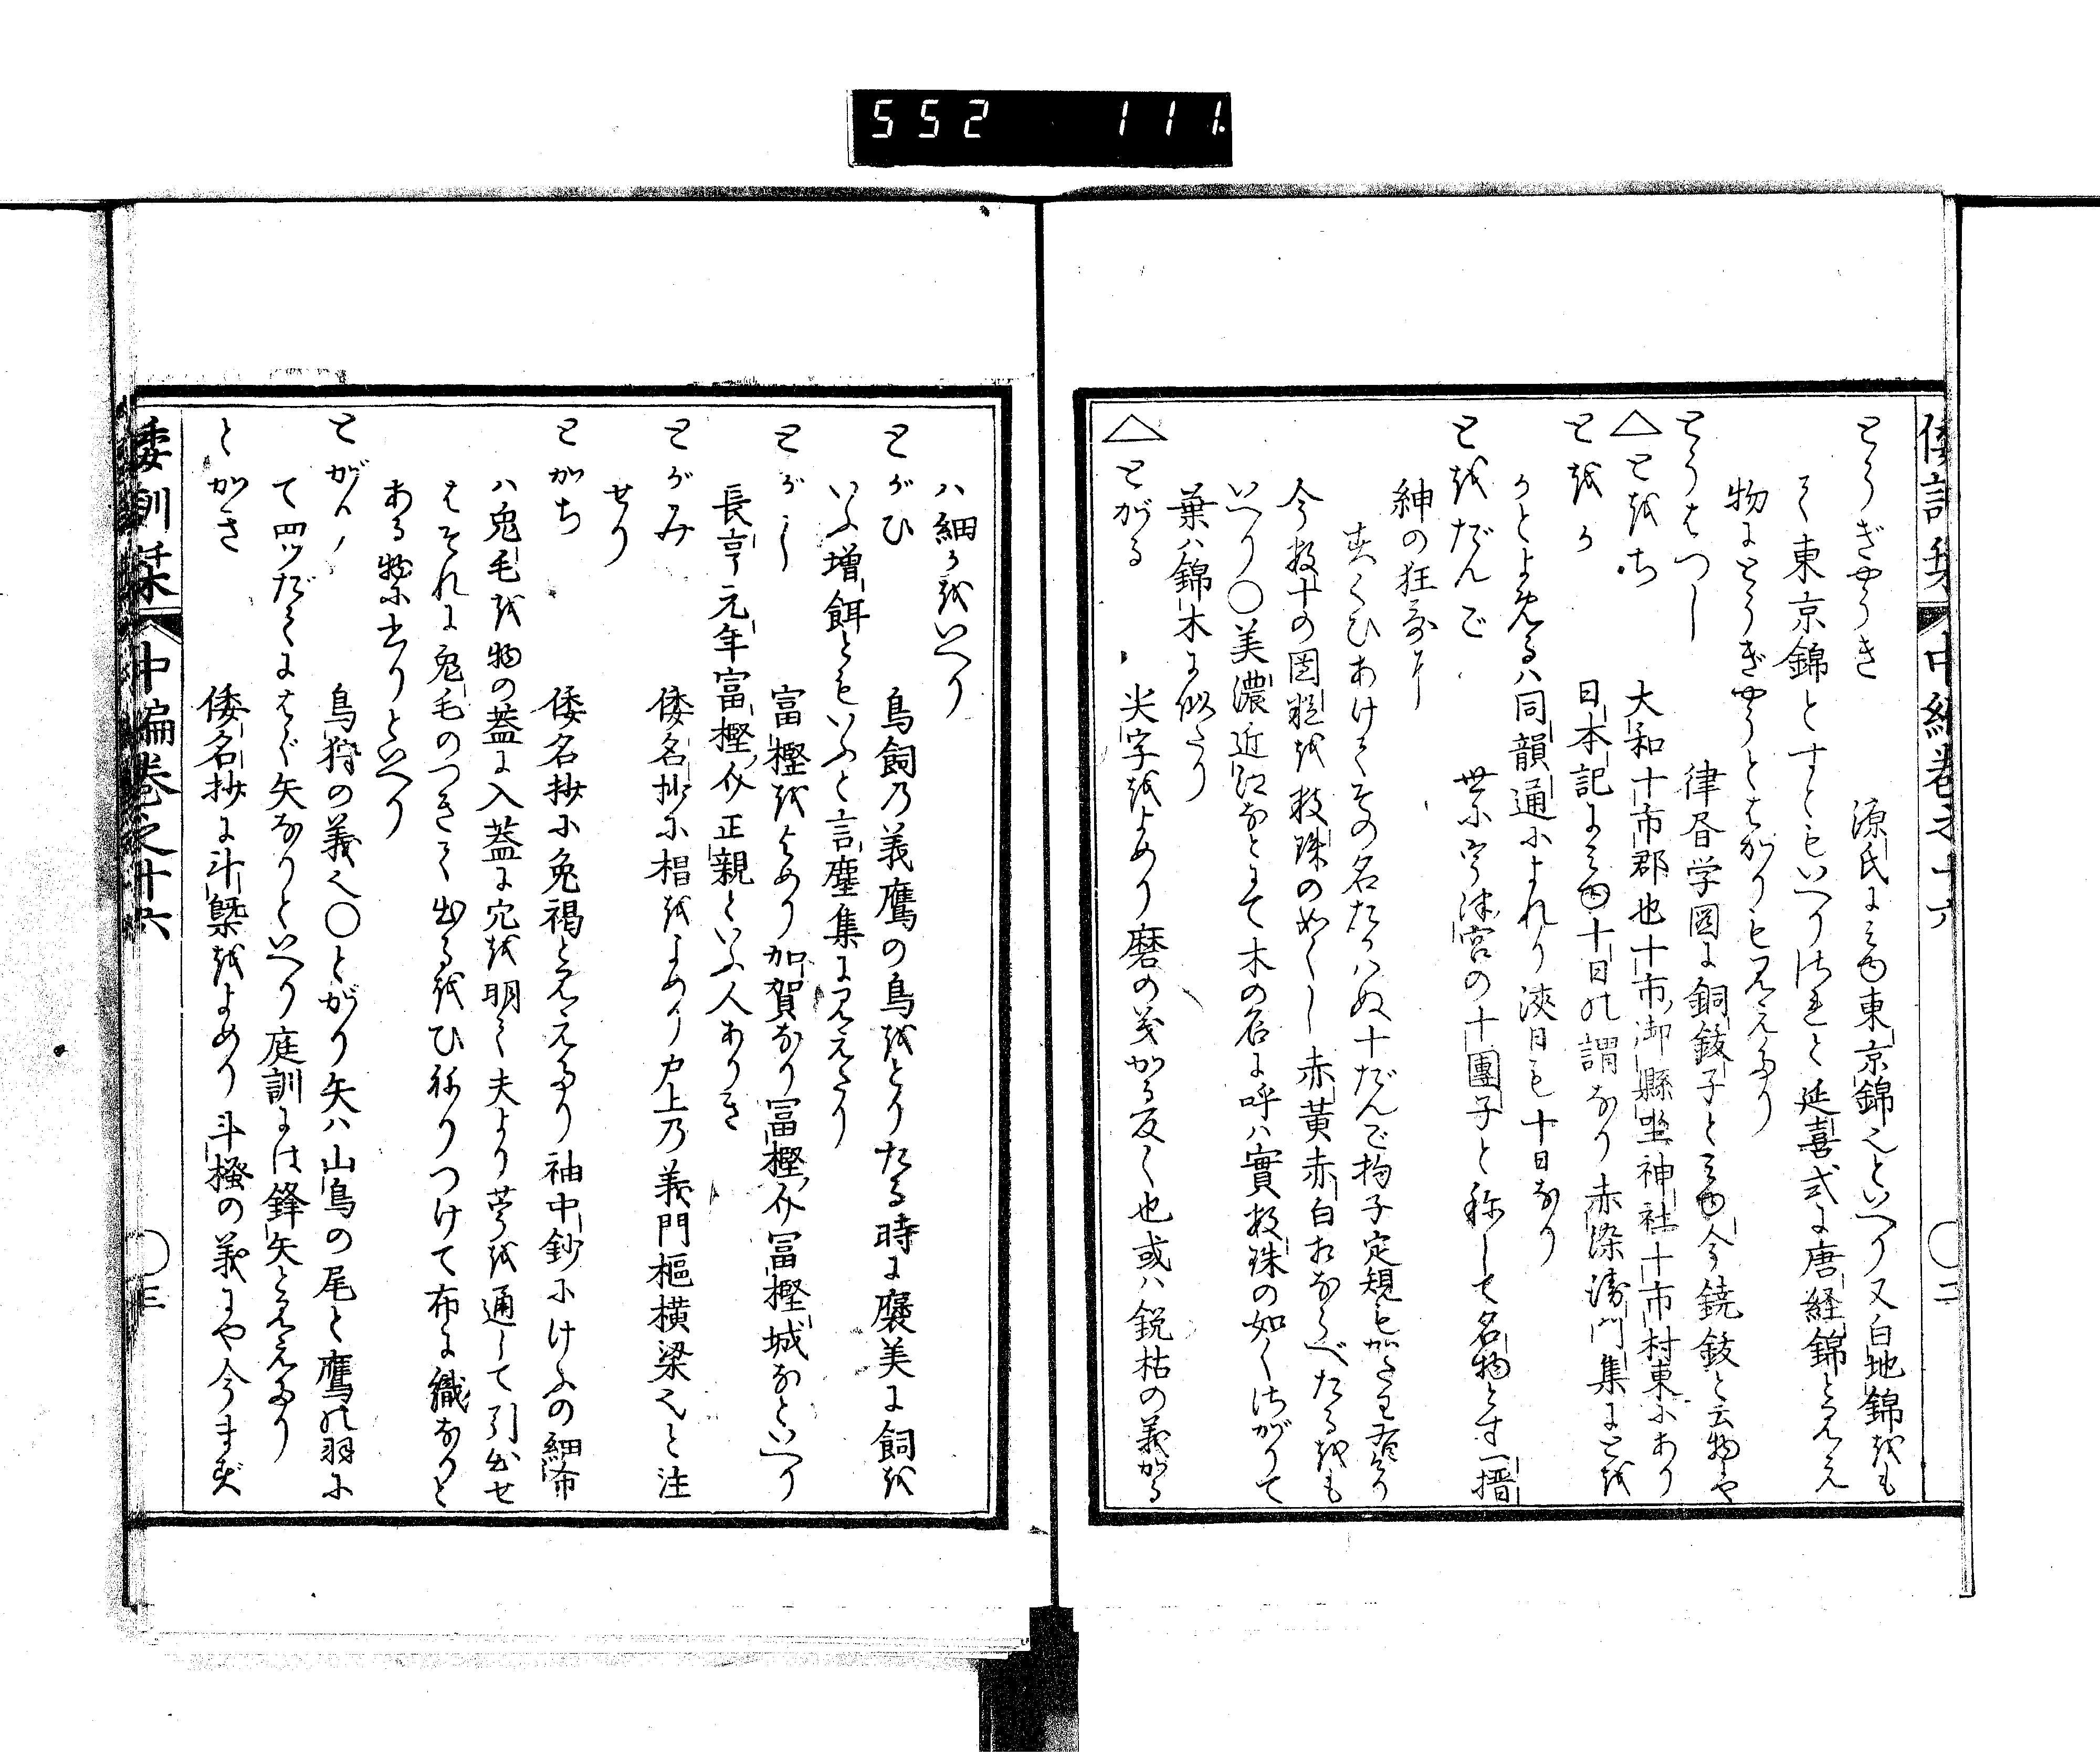 552 111
倭訓栞 中編巻之十六 ○二
とうぎやうき 源氏にみゆ東京錦也といへり又白地錦をも
て東京錦とすともいへりされと延喜式に唐経錦と見え
物にとうぎやうとはかりも見えたり
とうはつし 律呂学図に銅鈸子とみゆ今鐃鈸と云物にや
△とをち 大和十市郡也十市御縣坐神社十市村東にあり
とをか 日本記にみゆ十日の謂なり赤染衛門集にとを
かとよめるハ同韻通によれり浹日も十日なり
とをだんご 世に宇津宮の十團子と称して名物とす一搢
紳の狂哥に
杓子定規も
今数十の固粒を数珠の如くし赤黄赤白相ならべたるをも
いへり○美濃近江なとにて木の名に呼ハ實数珠の如くさがりて
葉ハ錦木に似たり
△とがる 尖字をよめり磨の義がる反く也或ハ鋭枯の義がる
ハ細かをいへり
とがひ 鳥飼乃義鷹の鳥をとりたる時に褒美に飼を
いふ増餌ともいふと言塵集に見えたり
とがし 富樫をよめり加賀なり富樫介富樫城なといへり
長享元年富樫介正親といふ人ありき
とがみ 倭名抄に梠をよめり戸上乃義門樞横梁也と注
せり
とがち 倭名抄に兔褐と見えたり袖中鈔にけふの細布
ハ兔毛を物の蓋に入蓋に穴を明て夫より莖を通して引出せ
はそれに兔毛のつきて出るをひねりつけて布に織なりと
ある物に出りといへり
とがり 鳥狩の義也○とがり矢ハ山鳥の尾と鷹の羽に
て四ツだてにはぐ矢なりといへり庭訓には鋒矢と見えたり
とがき 倭名抄に斗槩をよめり斗掻の義にや今ますが
倭訓栞 中編巻之十六 ○三